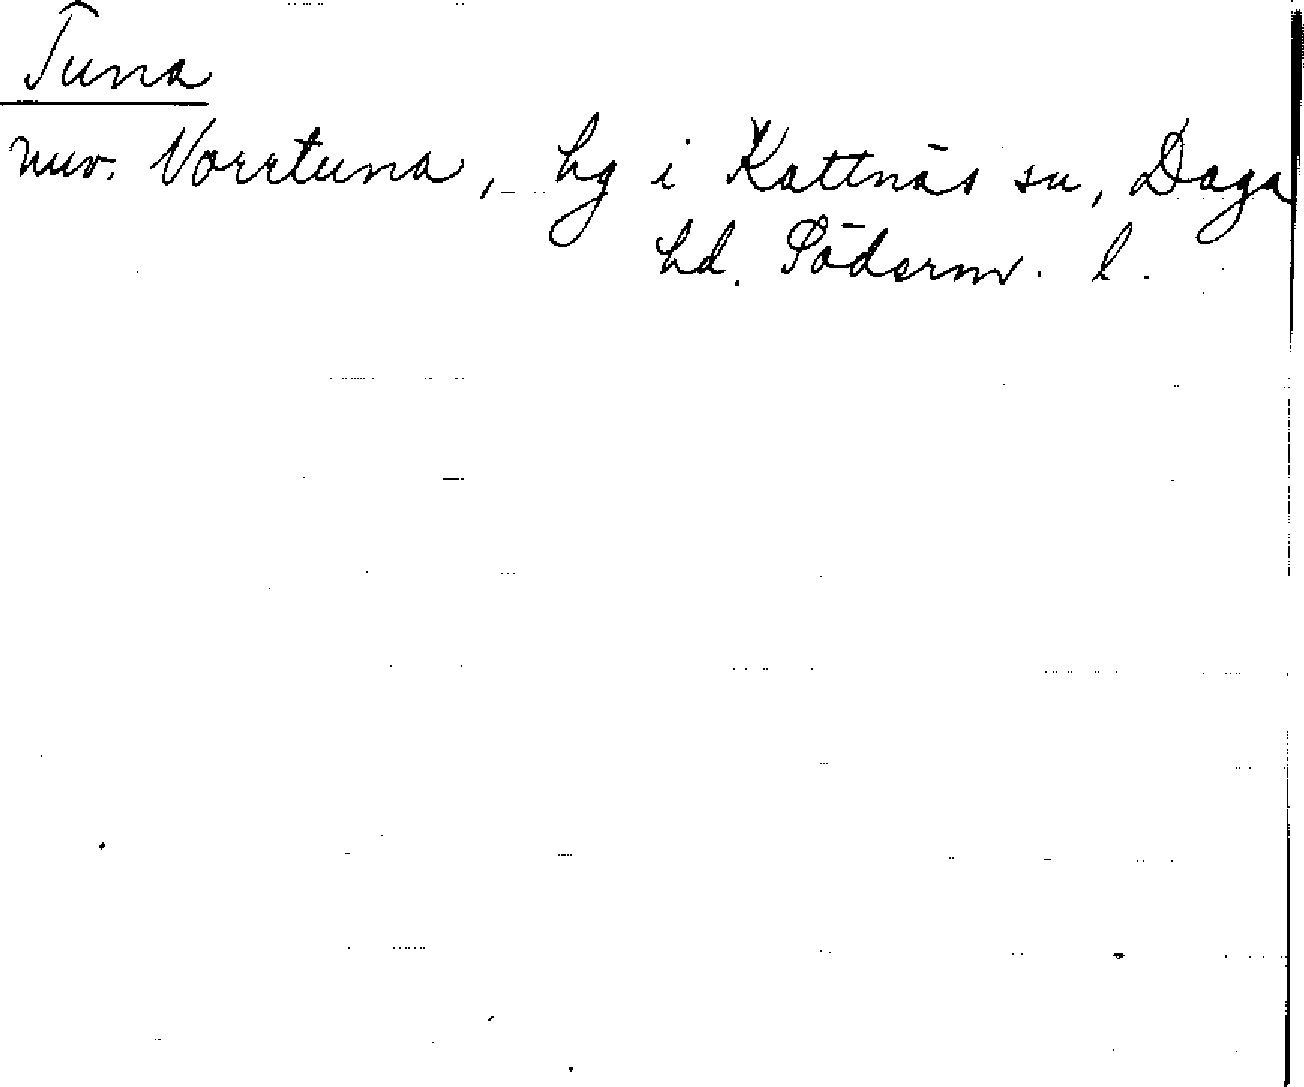 Tuna
nuv. Vorrtuna, hg i Kattnäs sn, Daga
hd. Söderm. l.